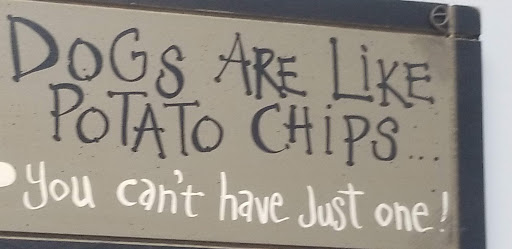 DOGS ARE LiKE
POTATO CHiPS...
you can't have Just one!